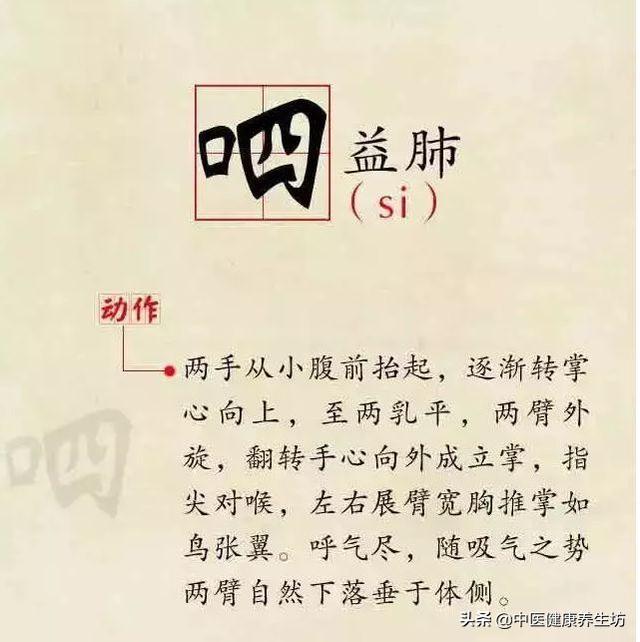 呬
益肺
（si）
动作
两手从小腹前抬起，逐渐转掌
心向上，至两乳平，两臂外
旋，翻转手心向外成立掌，指
尖对喉，左右展臂宽胸推掌如
鸟张翼。呼气尽，随吸气之势
两臂自然下落垂于体侧。
呬
头条 @中医健康养生坊